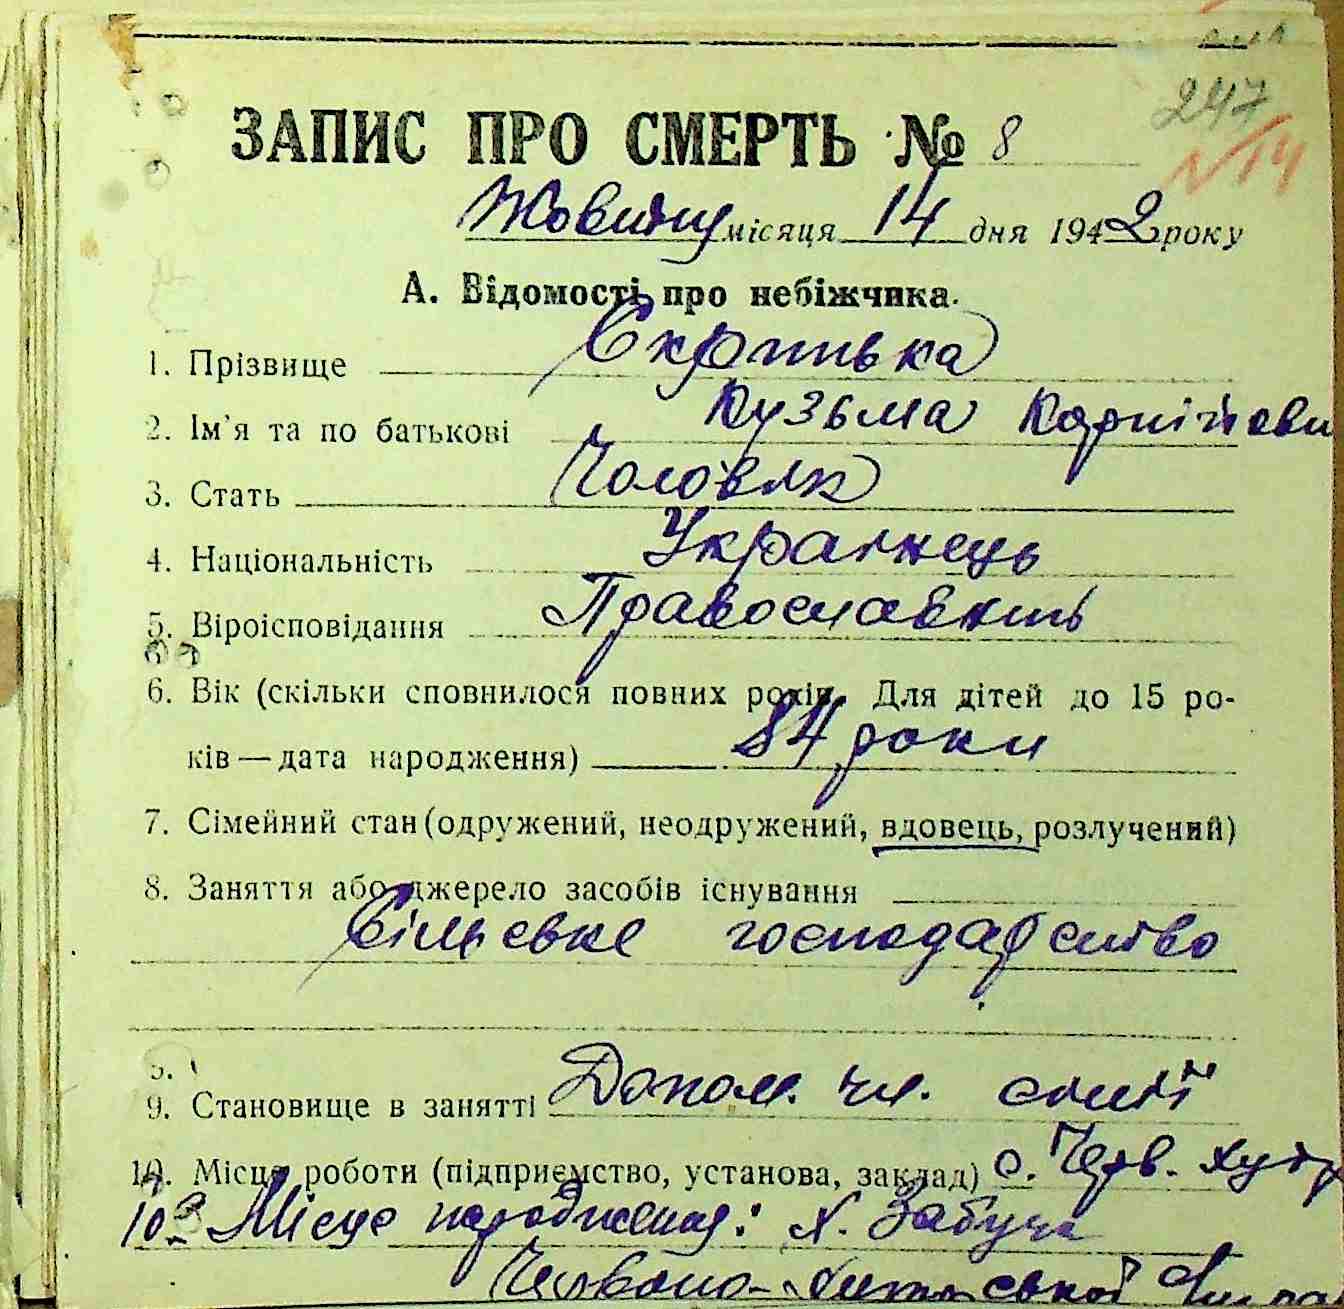 247
N 14
ЗАПИС ПРО СМЕРТЬ № 8
Жовтну місяця 14 дня 1942 року
А. Відомості про небіжчика.
1. Прізвище Скрипька
2. Ім'я та по батькові Кузьма Карпійови
3. Стать Чоловік
4. Національність Українець
5. Віроісповідання Православний
6. Вік (скільки сповнилося повних років. Для дітей до 15 ро-
ків — дата народження) 84 роки
7. Сімейний стан (одружений, неодружений, вдовець, розлучений)
8. Заняття або джерело засобів існування
Сільське господарство
9. Становище в занятті Допом. чл. сим'ї
10. Місце роботи (підприємство, установа, заклад) с. Черв. хутр
10а Місце народження: х. Забуча
Червоно-